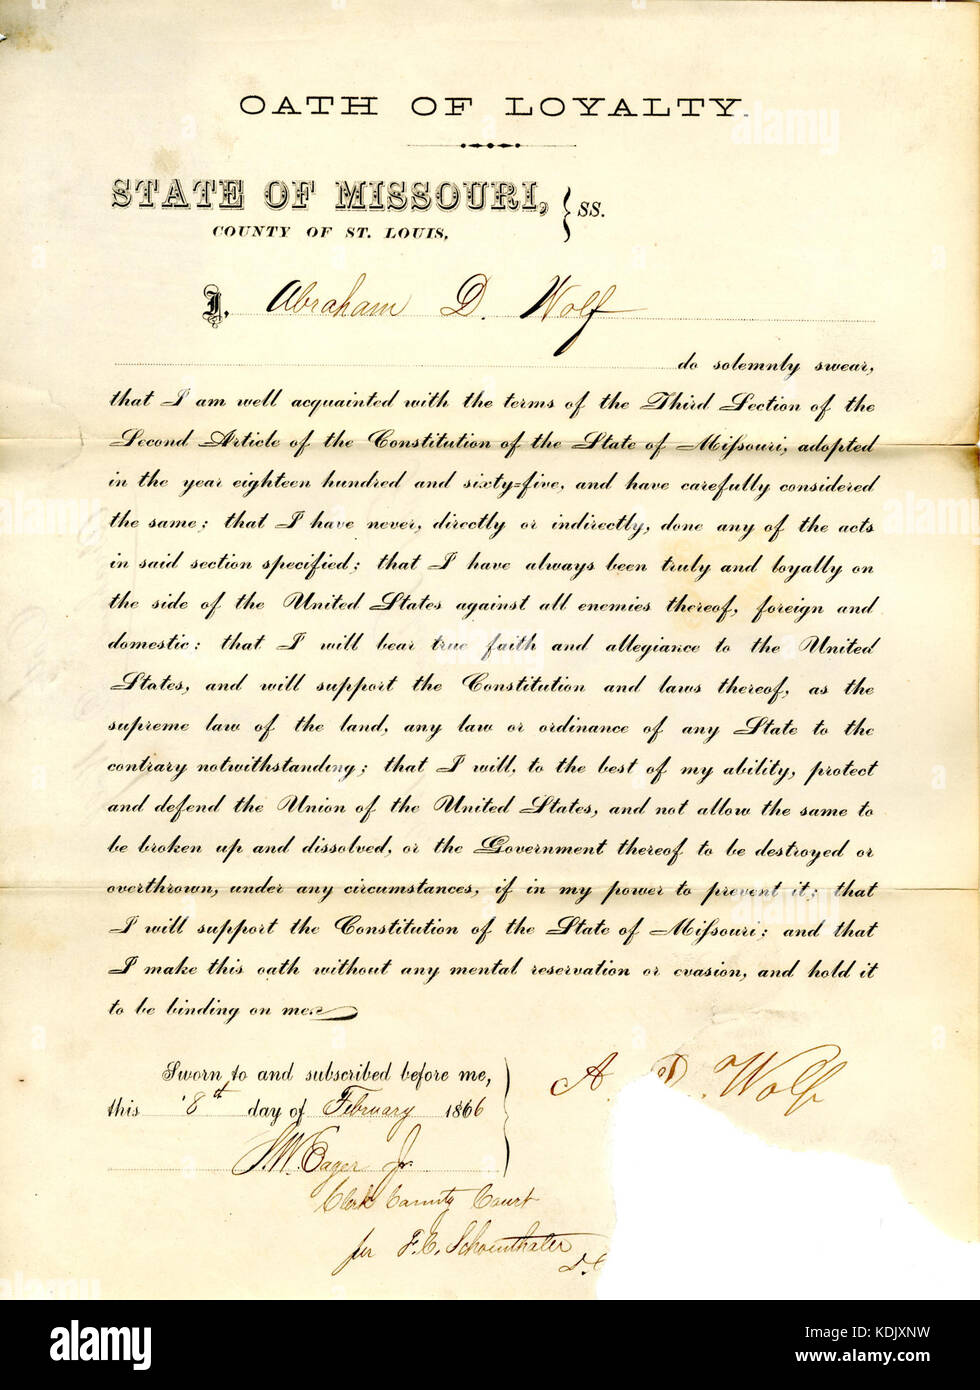 OATH OF LOYALTY.
STATE OF MISSOURI, } SS.
COUNTY OF ST. LOUIS,
I, Abraham D. Wolf
do solemnly swear,
that I am well acquainted with the terms of the Third Section of the
Second Article of the Constitution of the State of Missouri, adopted
in the year eighteen hundred and sixty=five, and have carefully considered
the same; that I have never, directly or indirectly, done any of the acts
in said section specified; that I have always been truly and loyally on
the side of the United States against all enemies thereof, foreign and
domestic: that I will bear true faith and allegiance to the United
States, and will support the Constitution and laws thereof, as the
supreme law of the land, any law or ordinance of any State to the
contrary notwithstanding; that I will, to the best of my ability, protect
and defend the Union of the United States, and not allow the same to
be broken up and dissolved, or the Government thereof to be destroyed or
overthrown, under any circumstances, if in my power to prevent it; that
I will support the Constitution of the State of Missouri; and that
I make this oath without any mental reservation or evasion, and hold it
to be binding on me.
Sworn to and subscribed before me,
this 8th day of February 1866
A. D. Wolf
S.W. Eager Jr.
Clerk County Court
per F.C. Schoenthaler
D.C
alamy
Image ID: KDJXNW
www.alamy.com